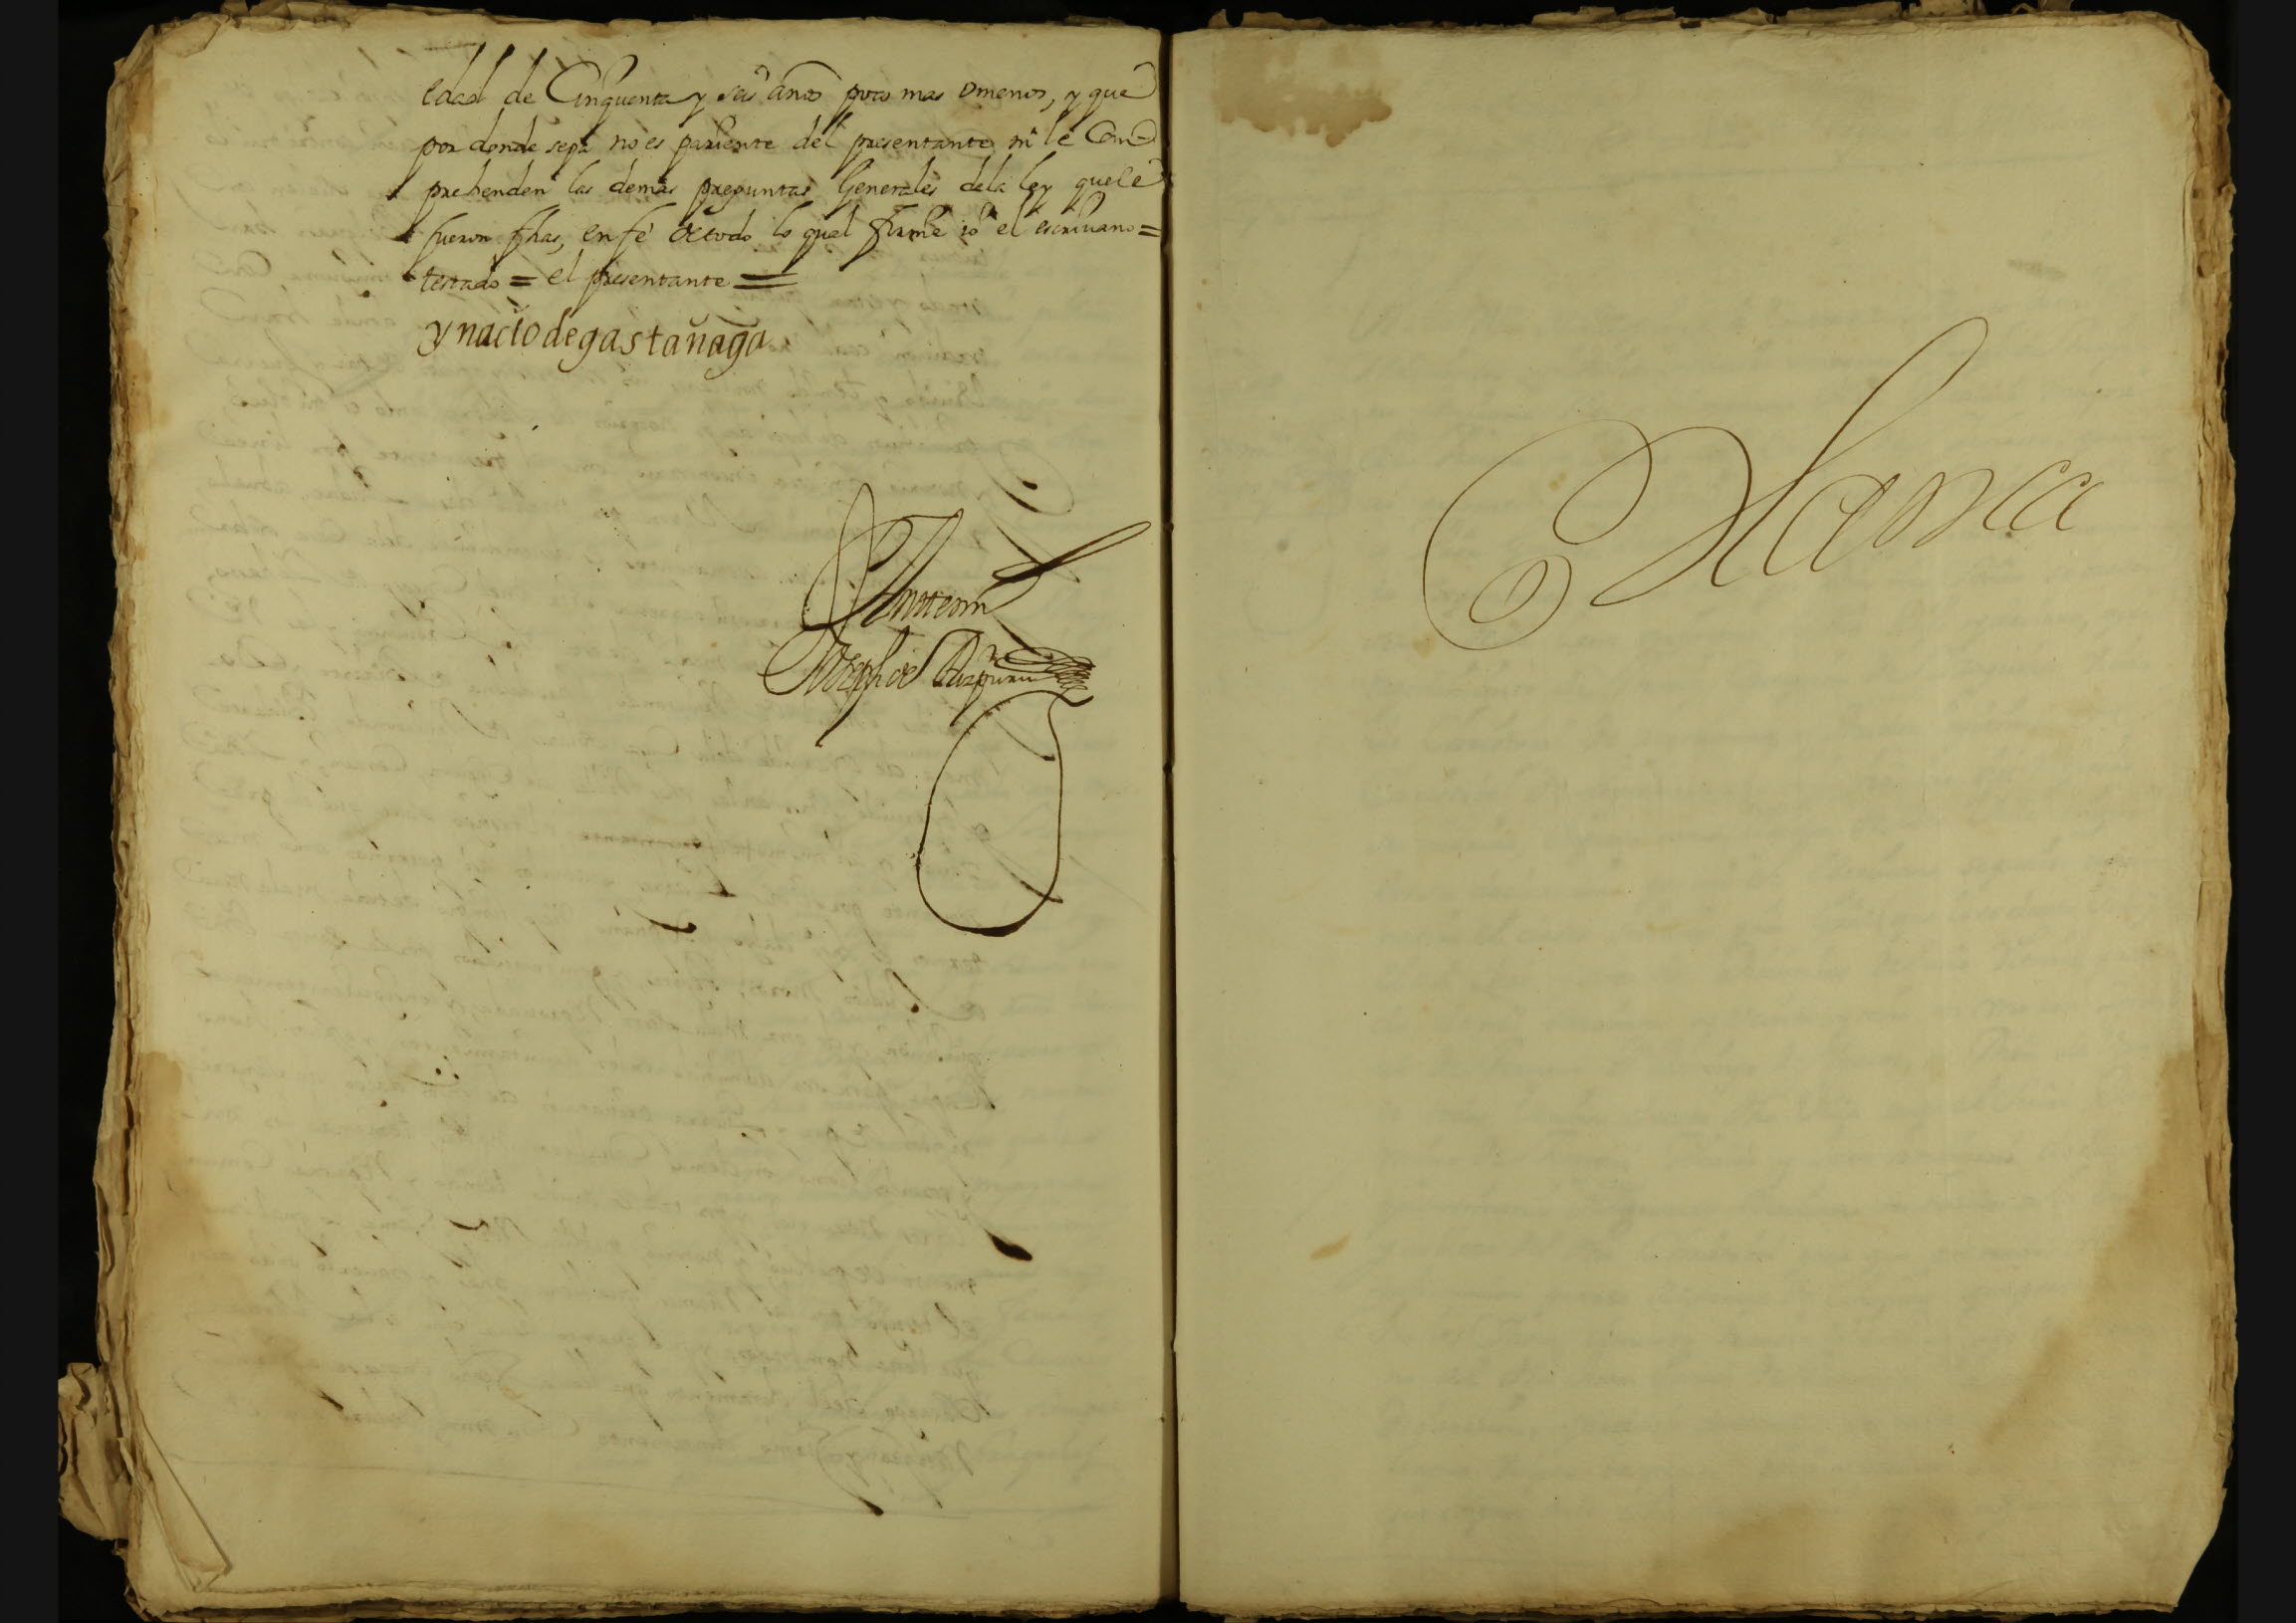 edad de Cinquenta y seis años poco mas omenos, y que
por donde sepa no es pariente del presentante ni le Com-
prehenden las demas preguntas Generales dela ley que le
fueron fhas, en fe de todo lo qual firme io el escrivano =
testado = el presentante =
ynacio de gastañaga
Ante mi
Joseph de
Blanca